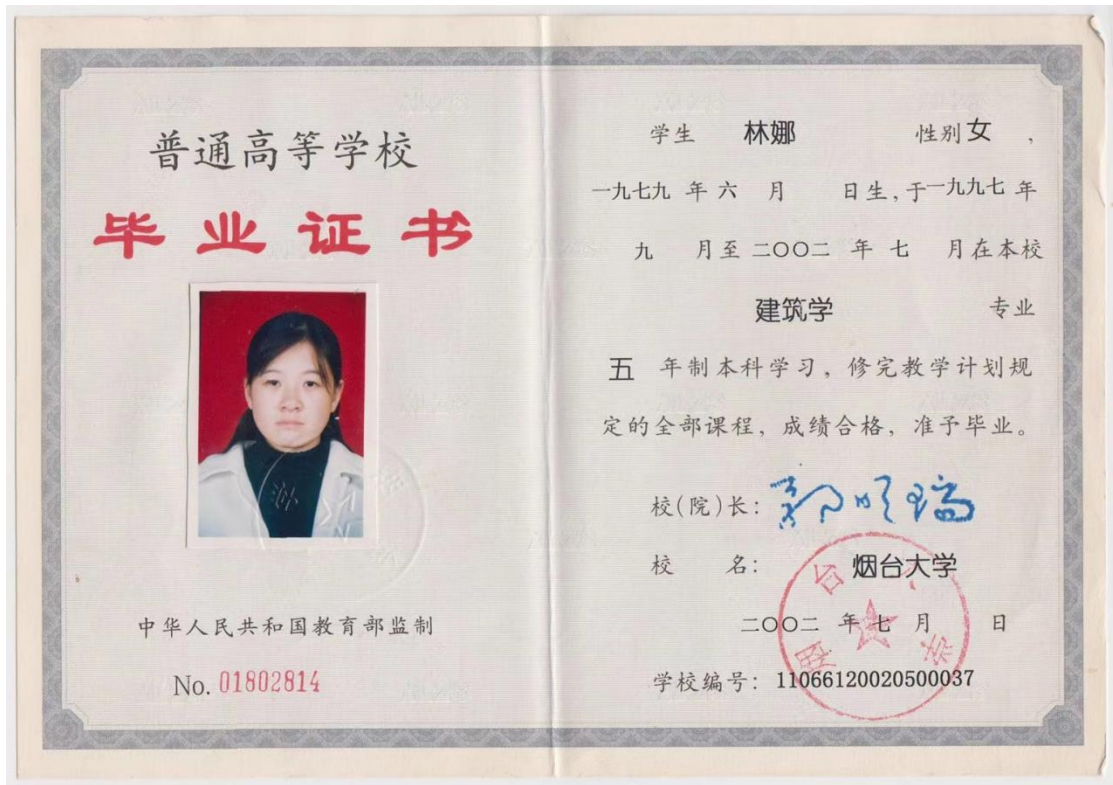 普通高等学校
毕业证书
中华人民共和国教育部监制
No. 01802814
学生 林娜 性别 女 ,
一九七九 年 六 月 日生, 于 一九九七 年
九 月至 二〇〇二 年 七 月在本校
建筑学 专业
五 年制本科学习, 修完教学计划规
定的全部课程, 成绩合格, 准予毕业。
校(院)长:
校 名: 烟台大学
二〇〇二 年 七 月 日
学校编号: 11066120020500037